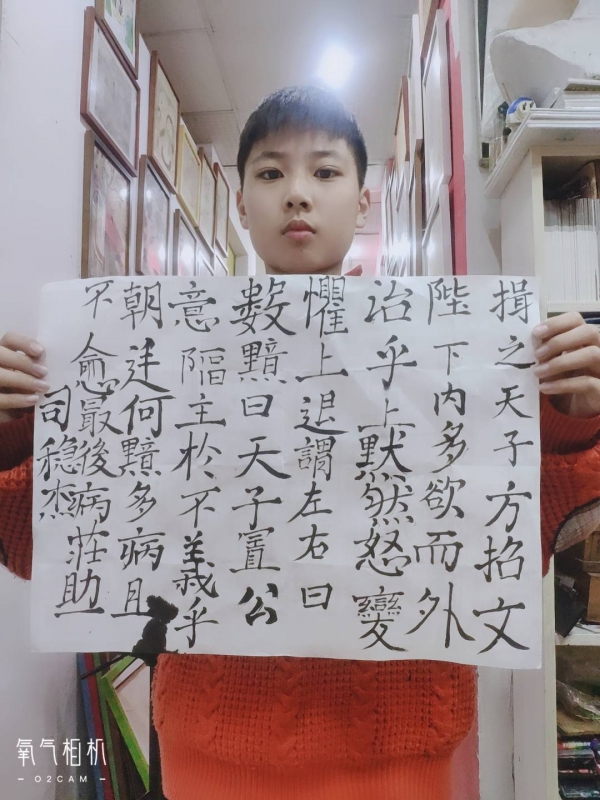 揖之天子方招文
陛下内多欲而外
治乎上默然怒變
懼上退謂左右曰
數黯曰天子置公
意陷主於不義乎
朝廷何黯多病且
不愈最後病莊助
司稳杰
氧气相机
- O2CAM -